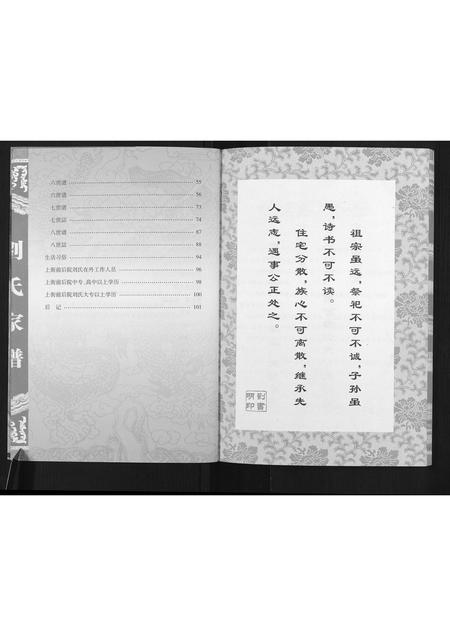 刘氏家谱
六世谱 55
六世谱 56
七世谱 73
七世誌 74
八世谱 87
八世誌 88
生活习俗 94
上街前后院刘氏在外工作人员 96
上街前后院中专、高中以上学历 98
上街前后院刘氏大专以上学历 100
后 记 101
祖宗虽远，祭祀不可不诚，子孙虽
愚，诗书不可不读。
住宅分散，族心不可离散，继承先
人远志，遇事公正处之。
刘书
明印